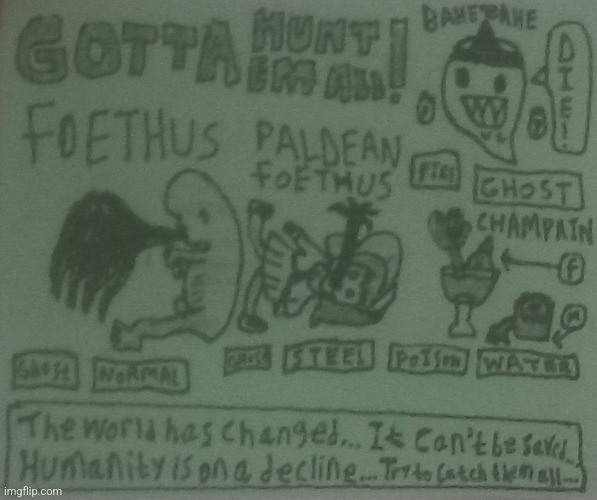 GOTTA HUNT
EM ALL!
BAHETAHE
DIE!
FOETHUS
PALDEAN
FOETHUS
FIRE
GHOST
CHAMPAIN
F
M
GHOST
NORMAL
GHOST
STEEL
POISON
WATER
The world has changed... It can't be saved..
Humanity is on a decline... Try to catch them all...
imgflip.com